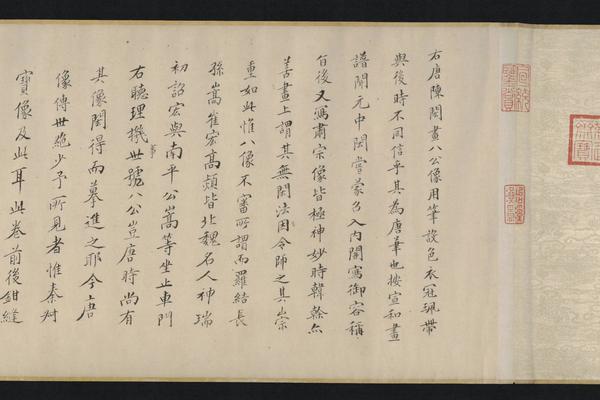 右唐陳閎畫八公像用筆設色衣冠珮帶
與後時不同信乎其為唐筆也按宣和畫
譜閎元中閎嘗蒙召入內閣寫御容稱
旨後又寫肅宗像皆極神妙時韓榦亦
善畫上謂其無閎法因令師之其崇
重如此惟八像不審所謂而羅結長
孫嵩崔宏高熲皆北魏名人神瑞
初詔宏與南平公嵩等坐止車門
右聽理機事世號八公豈唐時尚有
其像閎得而摹進之耶今唐
像傳世絕少予所見者惟秦府
寶像及此耳此卷前後鉗縫